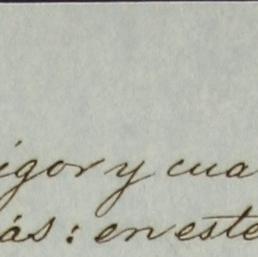 igor y cua
ás: en este